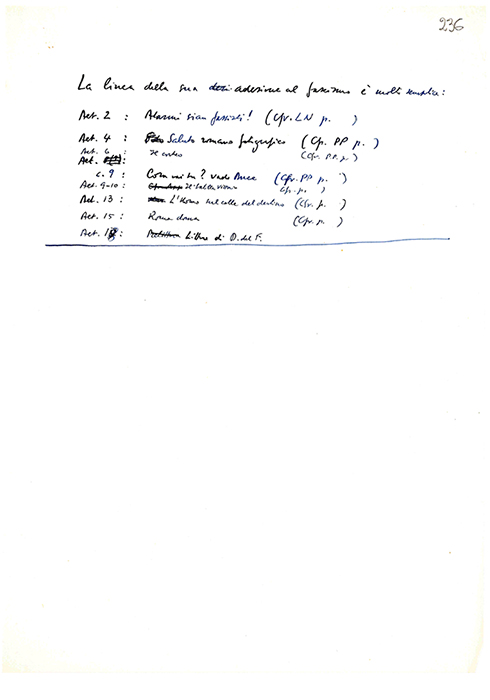 236
La linea della sua adesione al fascismo è molto semplice:
Art. 2 : Alarmi siam fascisti! (Cfr. LN p. )
Art. 4 : Saluto romano fotografico (Cfr. PP p. )
Art. 6 : Il corteo (Cfr. PP. p. )
Art.
c. 9 : Com vai tu? vado Duce (Cfr. PP p. )
Art. 9-10 : Il (Cfr. p. )
Art. 13 : L'Uomo sul colle del destino (Cfr. p. )
Art. 15 : Roma doma (Cfr. p. )
Art. 18 : di D. del F.